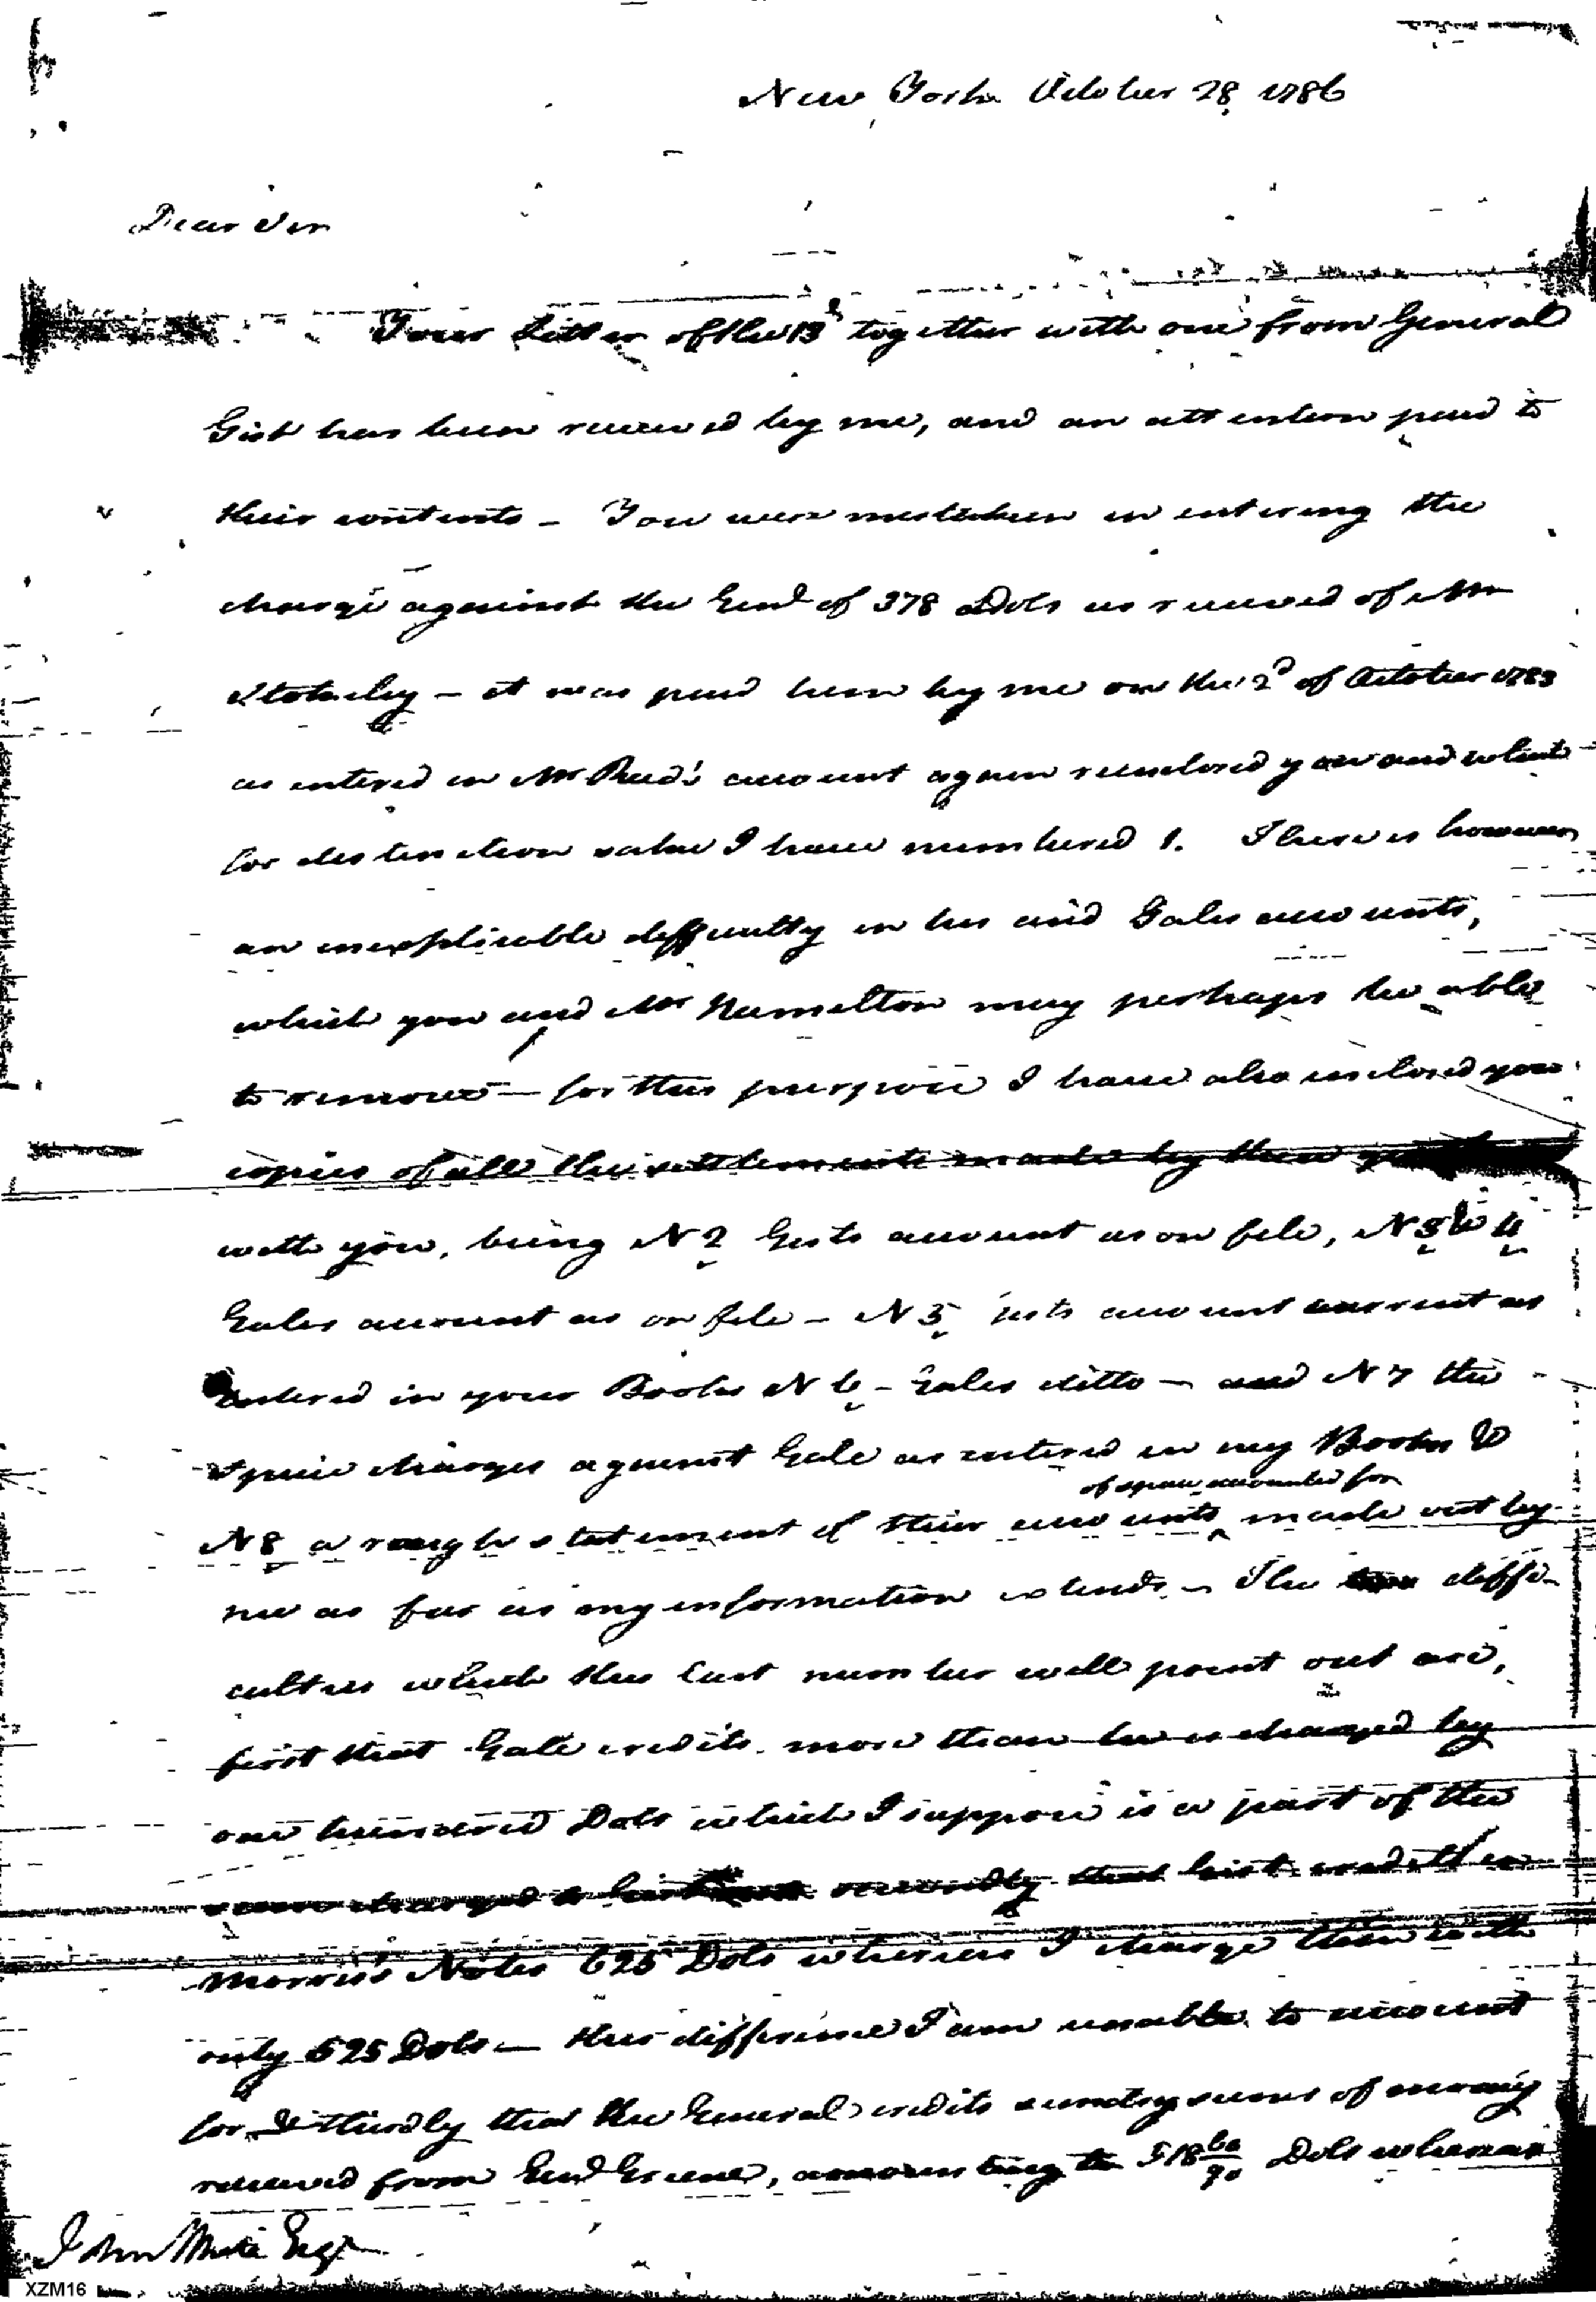 New York October 28, 1786
Dear Sir
Your Letter of the 13th together with one from General
Gist has been received by me, and an attention paid to
their contents - You were mistaken in entering the
charge against the Genl of 378 Dols as received of Mr
Stokeley - it was paid him by me on the 2d of October 1783
as entered in Mr Read's account again reinclosed you and which
for distinction sake I have numbered 1. There is however
an inexplicable difficulty in his and Gales accounts,
which you and Mr Hamelton may perhaps be able
to remove - for this purpose I have also inclosed you
copies of all the settlements made by these
with you, being N 2 Gists account as on file, N 3 & 4
Gales account as on file - N 5 ists account current as
entered in your Books N 6 - Gales ditto - and N 7 the
Specie charges against Gale as entered in my Books &
of specie accounted for
N 8 a rough statement of their accounts ^ made out by
me as far as my information extends - The diffi-
culties which this last number will point out are,
first that Gale credits more than he is charged by
one hundred Dols which I suppose is a part of the
charged to Gist secondly that Gist credits in
Morris's Notes 625 Dols whereas I charge them with
only 525 Dols - this difference I am unable to account
for & thirdly that the General credits sundry sums of money
received from Genl Greene, amounting to 518 60/90 Dols whereas
John White Esqr
XZM16